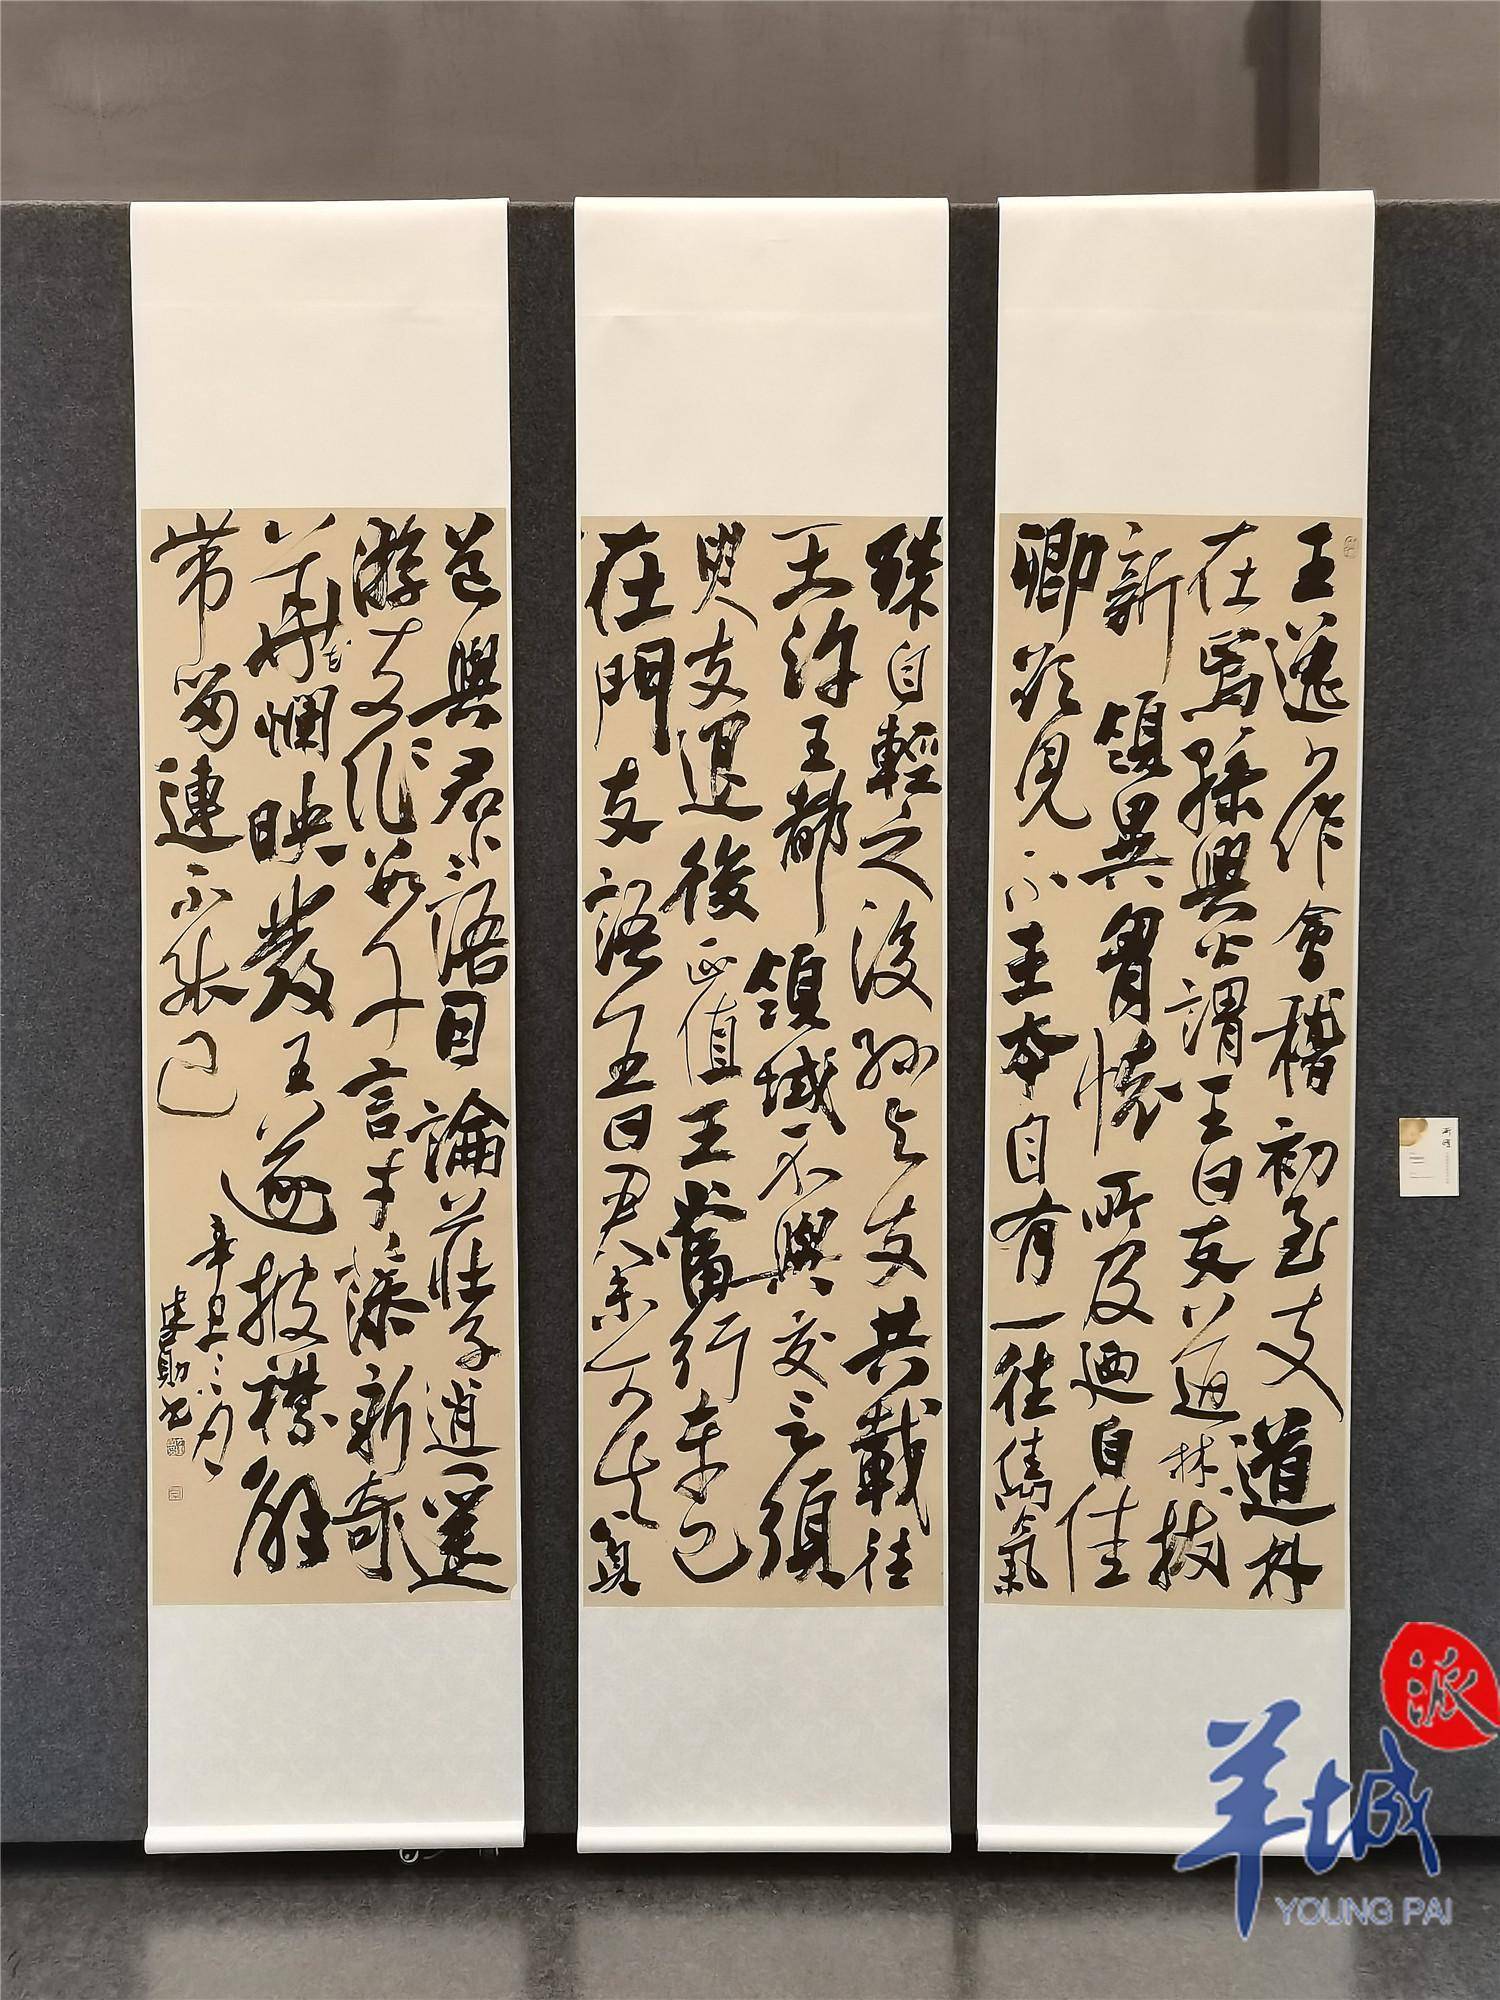 王逸少作會稽初至支道林
在焉孫興公謂王曰支道林拔
新領異胷懷所及迺自佳
卿欲見不王本自有一往雋氣
殊自輕之後孫與支共載往
王許王都領域不與交言須
臾支退後正值王當行車已
在門支語王曰君未可去貧
道與君小語因論莊子逍遙
游支作數千言才藻新奇
花爛映發王遂披襟解
帶留連不能已
辛丑三月
建勛書
羊城派
YOUNG PAI